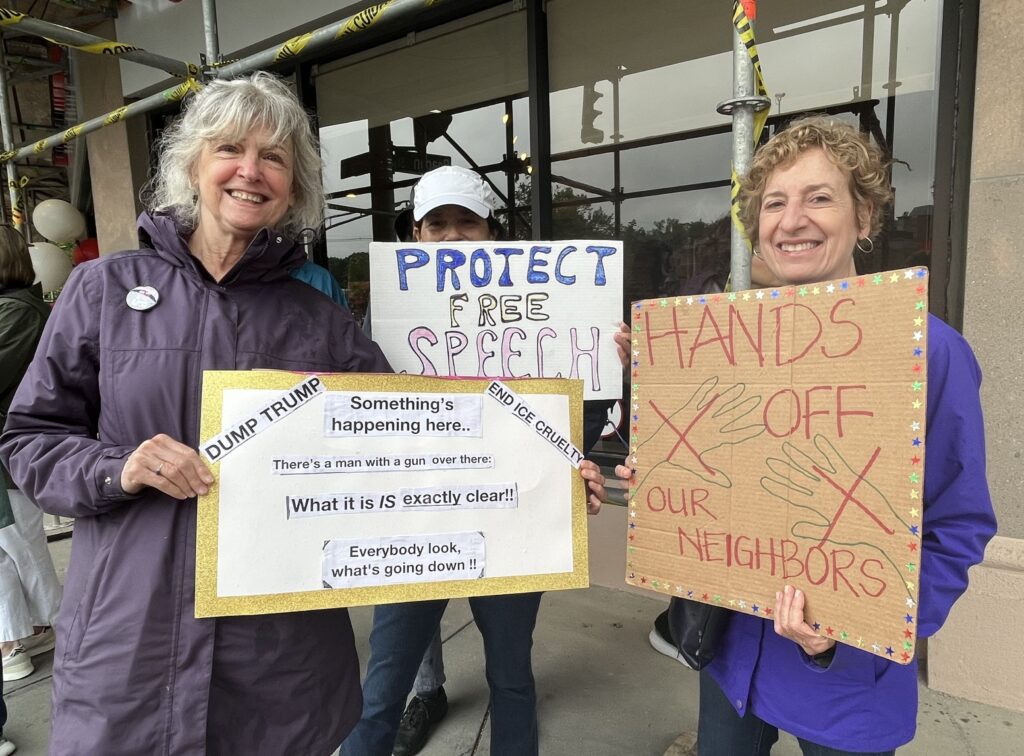 PROTECT
FREE
SPEECH
DUMP TRUMP
END ICE CRUELTY
Something's
happening here..
There's a man with a gun over there:
What it is IS exactly clear!!
Everybody look,
what's going down !!
HANDS
OFF
OUR
NEIGHBORS